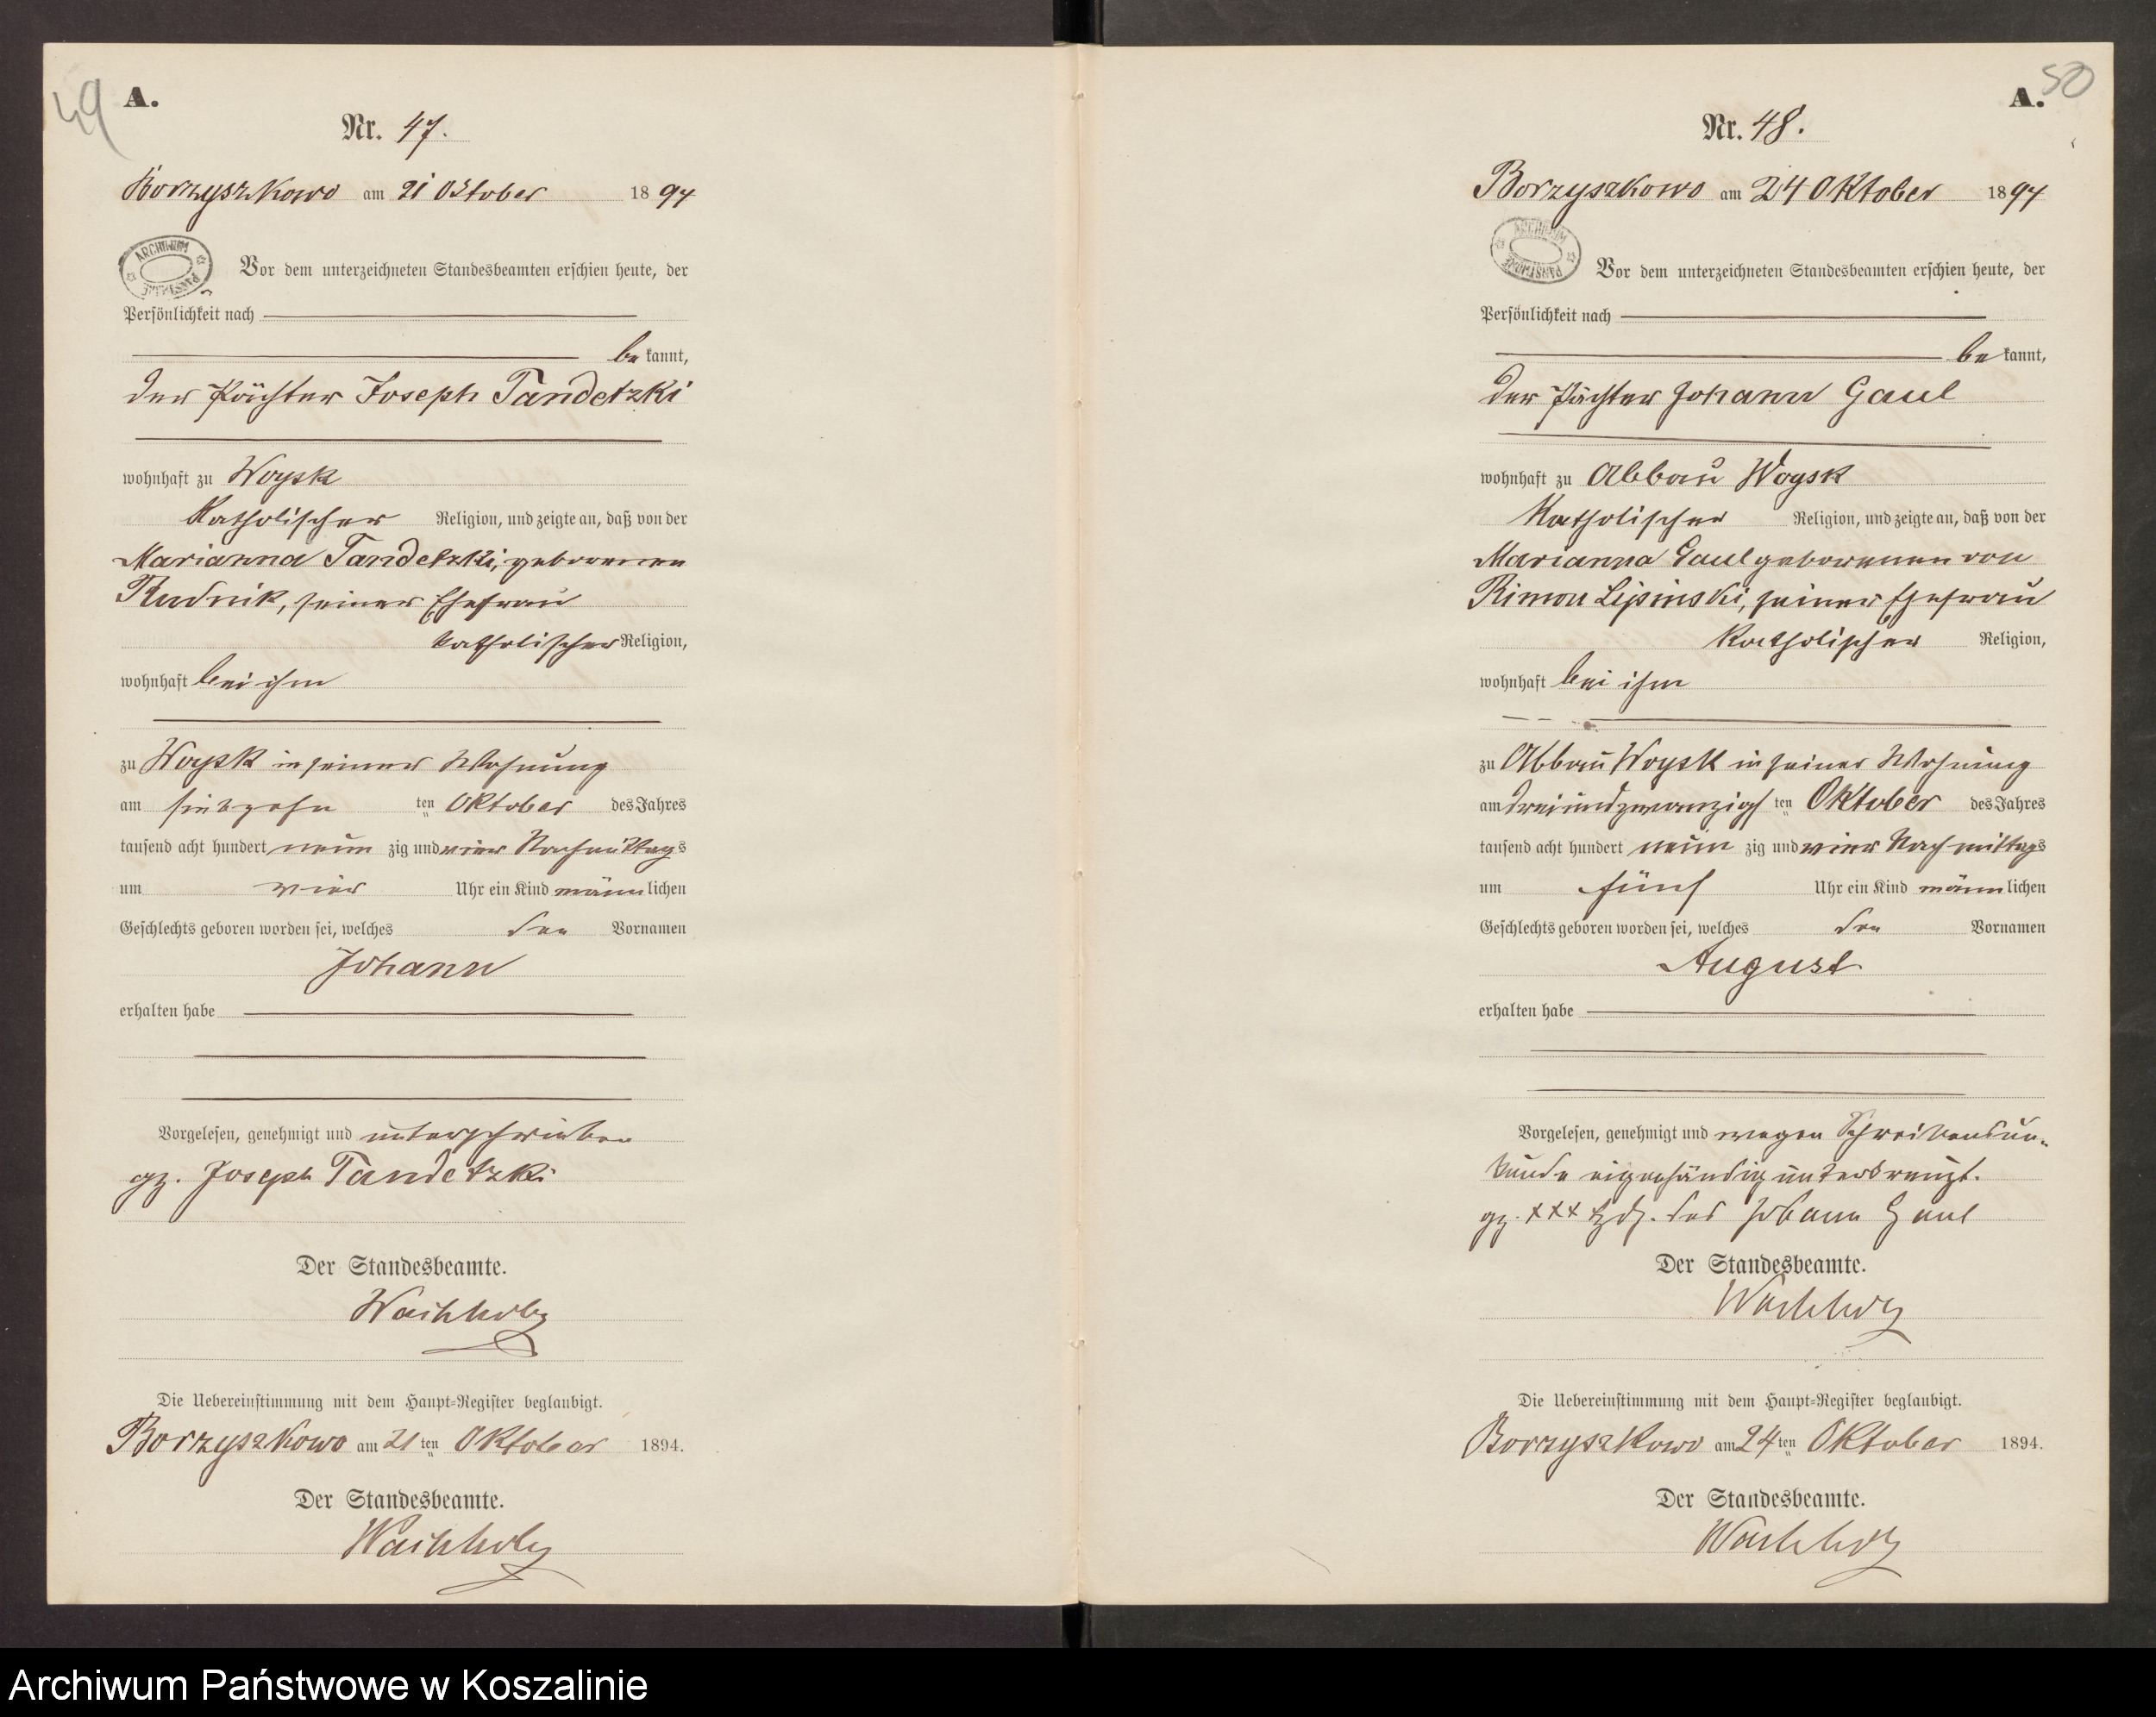 49
A.
Nr. 47.
Borzyszkowo am 21 Oktober 1894
ARCHIWUM PAŃSTWOWE
Vor dem unterzeichneten Standesbeamten erschien heute, der
Persönlichkeit nach
be kannt,
der Pächter Joseph Tandetzki
wohnhaft zu Woysk
katholischer Religion, und zeigte an, daß von der
Marianna Tandetzki, geborenen
Rudnik, seiner Ehefrau
katholischer Religion,
wohnhaft bei ihm
zu Woysk in seiner Wohnung
am siebzehn ten Oktober des Jahres
tausend acht hundert neun zig und vier Nachmittags
um vier Uhr ein Kind männlichen
Geschlechts geboren worden sei, welches den Vornamen
Johann
erhalten habe
Vorgelesen, genehmigt und unterschrieben
gz. Joseph Tandetzki
Der Standesbeamte.
Wachholz
Die Uebereinstimmung mit dem Haupt-Register beglaubigt.
Borzyszkowo am 21 ten Oktober 1894.
Der Standesbeamte.
Wachholz
50
A.
Nr. 48.
Borzyszkowo am 24 Oktober 1894
ARCHIWUM PAŃSTWOWE
Vor dem unterzeichneten Standesbeamten erschien heute, der
Persönlichkeit nach
be kannt,
der Pächter Johann Gaul
wohnhaft zu Abbau Woysk
katholischer Religion, und zeigte an, daß von der
Marianna Gaul geborenen von
Rimon Lipinski, seiner Ehefrau
katholischer Religion,
wohnhaft bei ihm
zu Abbau Woysk in seiner Wohnung
am dreiundzwanzigs ten Oktober des Jahres
tausend acht hundert neun zig und vier Nachmittags
um fünf Uhr ein Kind männlichen
Geschlechts geboren worden sei, welches den Vornamen
August
erhalten habe
Vorgelesen, genehmigt und wegen Schreibensun-
kunde eigenhändig unterkreuzt.
gz. xxx Hdz. des Johann Gaul
Der Standesbeamte.
Wachholz
Die Uebereinstimmung mit dem Haupt-Register beglaubigt.
Borzyszkowo am 24 ten Oktober 1894.
Der Standesbeamte.
Wachholz
Archiwum Państwowe w Koszalinie